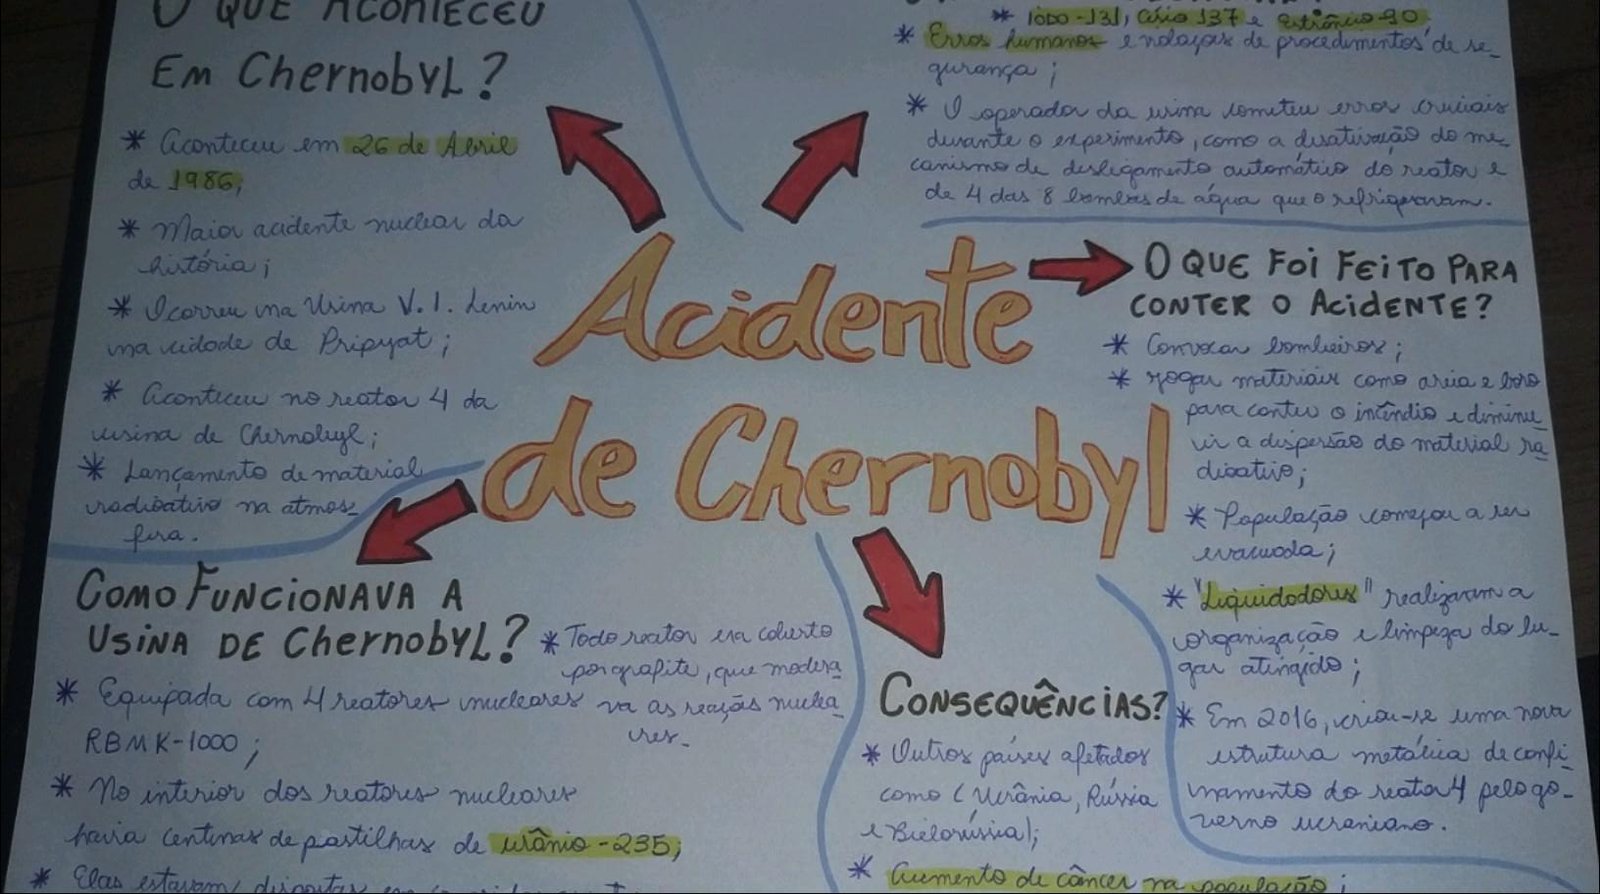 O QUE ACONTECEU
EM CHERNOBYL?
* Aconteceu em 26 de Abril
de 1986;
* Maior acidente nuclear da
história;
* Ocorreu na Usina V. I. Lenin
na cidade de Pripyat;
* Aconteceu no reator 4 da
usina de Chernobyl;
* Lançamento de material
radioativo na atmos-
fera.
* iodo-131, césio 137 e estrôncio-90.
* Erros humanos e violações de procedimentos de se-
gurança;
* O operador da usina cometeu erros cruciais
durante o experimento, como a desativação do me-
canismo de desligamento automático do reator e
de 4 das 8 bombas de água que o refrigeravam.
Acidente
de Chernobyl
O QUE FOI FEITO PARA
CONTER O ACIDENTE?
* Convocar bombeiros;
* Jogar materiais como areia e boro
para conter o incêndio e diminu-
ir a dispersão do material ra-
dioativo;
* População começou a ser
evacuada;
* "Liquidadores" realizaram a
organização e limpeza do lu-
gar atingido;
* Em 2016, criou-se uma nova
estrutura metálica de confi-
namento do reator 4 pelo go-
verno ucraniano.
COMO FUNCIONAVA A
USINA DE CHERNOBYL?
* Equipada com 4 reatores nucleares
RBMK-1000;
* No interior dos reatores nucleares
havia centenas de pastilhas de urânio-235;
* Elas estavam dispostas em
* Todo reator era coberto
por grafite, que modera
va as reações nuclea
res.
CONSEQUÊNCIAS?
* Outros países afetados
como (Ucrânia, Rússia
e Bielorússia);
* Aumento de câncer na população;